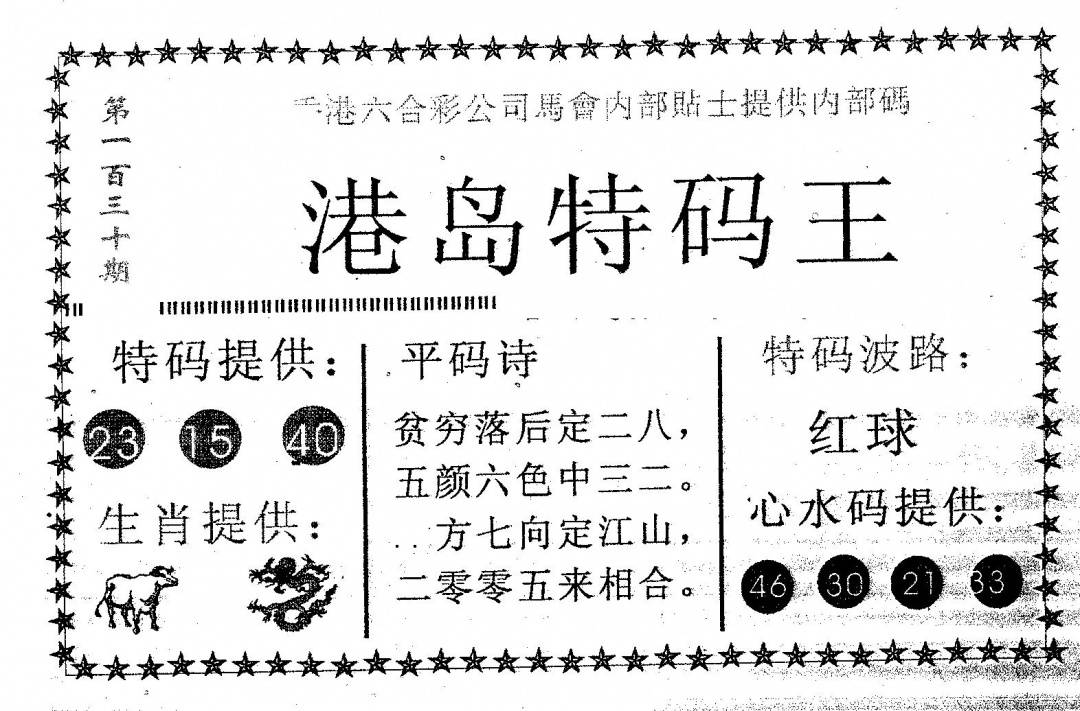 第一百三十期
港六合彩公司馬會内部貼士提供内部碼
港岛特码王
特码提供：
23 15 40
生肖提供：
平码诗
贫穷落后定二八，
五颜六色中三二。
方七向定江山，
二零零五来相合。
特码波路：
红球
心水码提供：
46 30 21 33